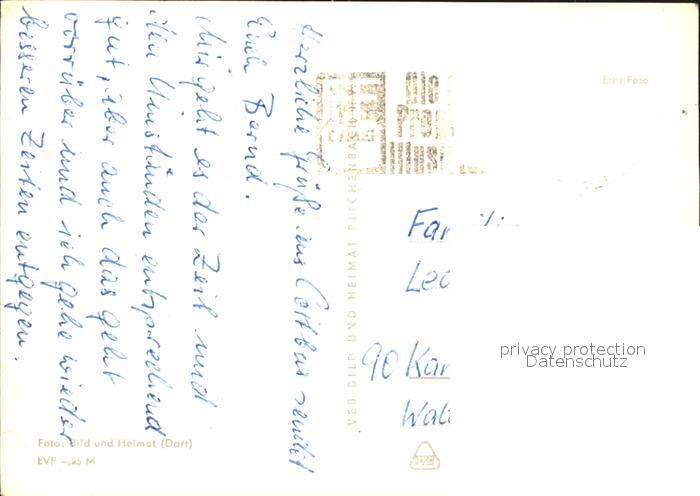 Herzliche Grüße aus Cottbus sendet
Euch Bernd.
Mir geht es der Zeit und
den Umständen entsprechend
gut, aber auch das geht
vorrüber und ich gehe wieder
besseren Zeiten entgegen.
Echt Foto
VEB BILD UND HEIMAT REICHENBACH
Fa
Leo
90 Kar
Wal
privacy protection
Datenschutz
Foto: Bild und Heimat (Darr)
EVP –,25 M